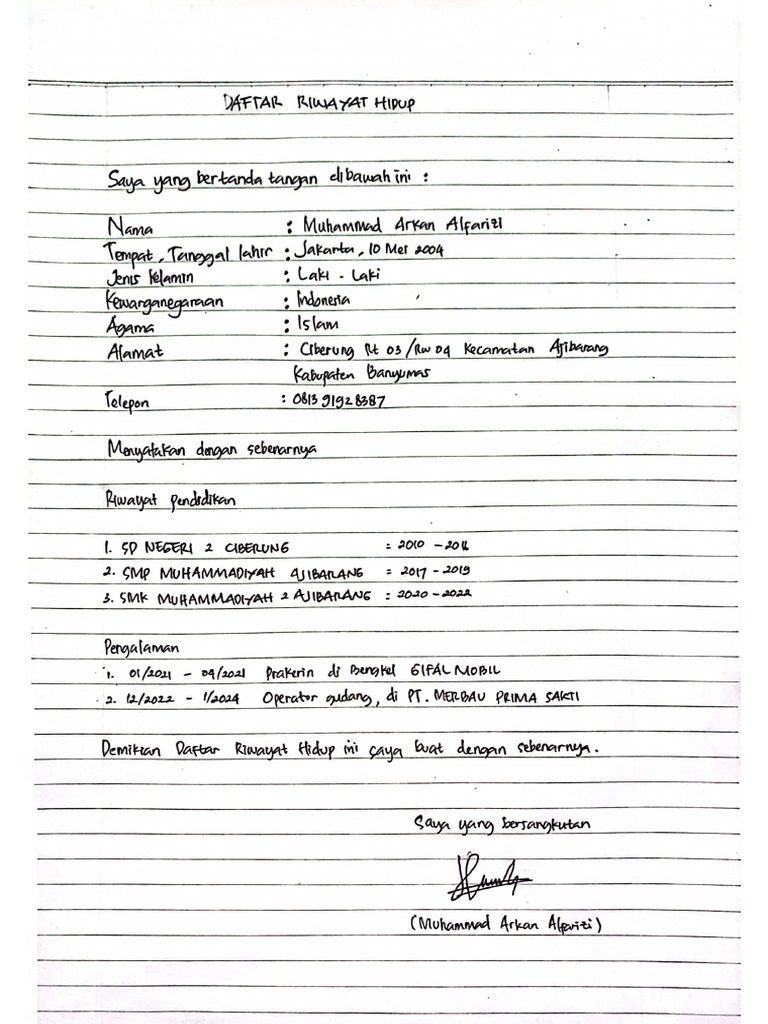 DAFTAR RIWAYAT HIDUP
Saya yang bertanda tangan dibawah ini :
Nama : Muhammad Arkan Alfarizi
Tempat, Tanggal lahir : Jakarta, 10 Mei 2004
Jenis Kelamin : Laki - Laki
Kewarganegaraan : Indonesia
Agama : Islam
Alamat : Ciberung Rt 03 /Rw 04 Kecamatan Ajibarang
Kabupaten Banyumas
Telepon : 0813 9192 8387
Menyatakan dengan sebenarnya
Riwayat pendidikan
1. SD NEGERI 2 CIBERUNG : 2010 - 2016
2. SMP MUHAMMADIYAH AJIBARANG : 2017 - 2019
3. SMK MUHAMMADIYAH 2 AJIBARANG : 2020 - 2022
Pengalaman
1. 01/2021 - 04/2021 Prakerin di Bengkel GIFAL MOBIL
2. 12/2022 - 1/2024 Operator gudang, di PT. MERBAU PRIMA SAKTI
Demikian Daftar Riwayat Hidup ini saya buat dengan sebenarnya.
Saya yang bersangkutan
(Muhammad Arkan Alfarizi)